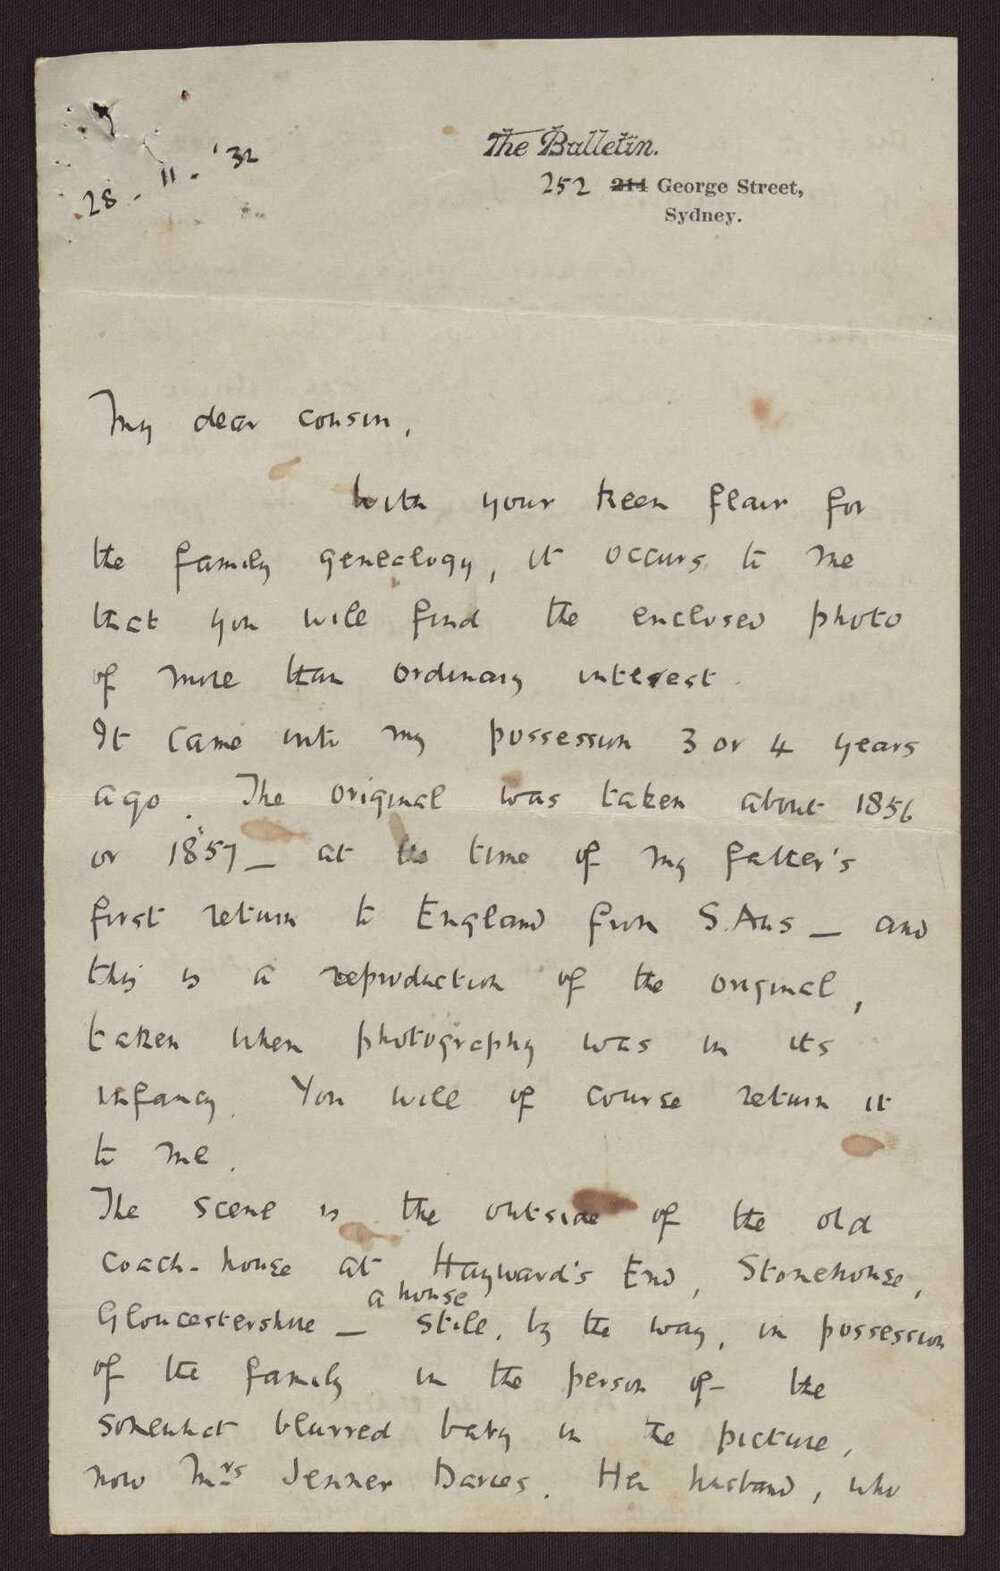 28-11-'32
The Bulletin.
252 214 George Street,
Sydney.
My dear cousin,
With your keen flair for
the family genealogy, it occurs to me
that you will find the enclosed photo
of more than ordinary interest.
It came into my possession 3 or 4 years
ago. The original was taken about 1856
or 1857 — at the time of my father's
first return to England from S. Aus — and
this is a reproduction of the original,
taken when photography was in its
infancy. You will of course return it
to me.
The scene is the outside of the old
coach-house at Hayward's End, Stonehouse,
a house
Gloucestershire — still, by the way, in possession
of the family in the person of the
somewhat blurred baby in the picture,
now Mrs Jenner Davies. Her husband, who